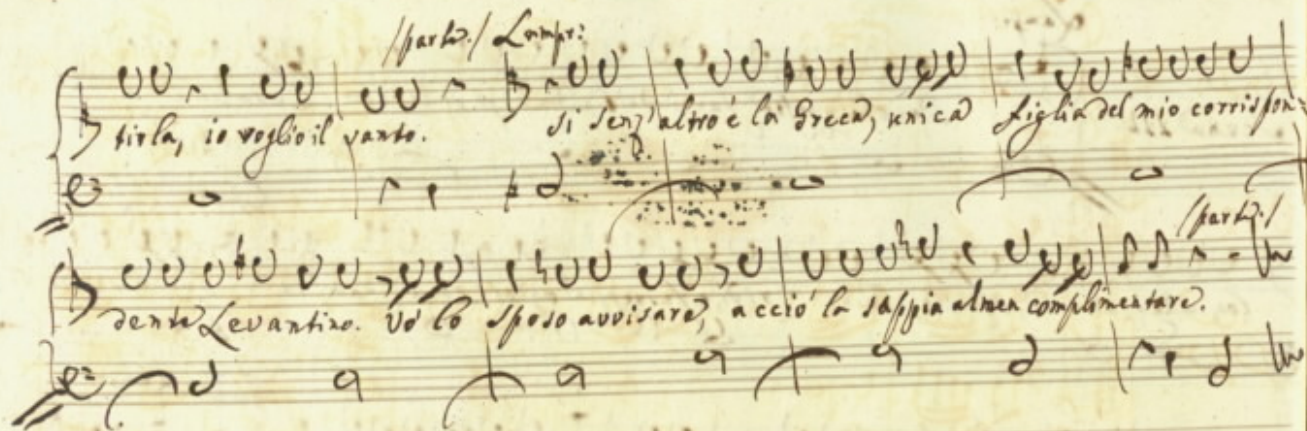 /parte./ Lampr:
tirla, io voglio il vanto. Si senz'altro è la Greca, unica figlia del mio corrispon:
/parte./
dente Levantino. Vo' lo sposo avvisare, acciò la sappia almen complimentare.